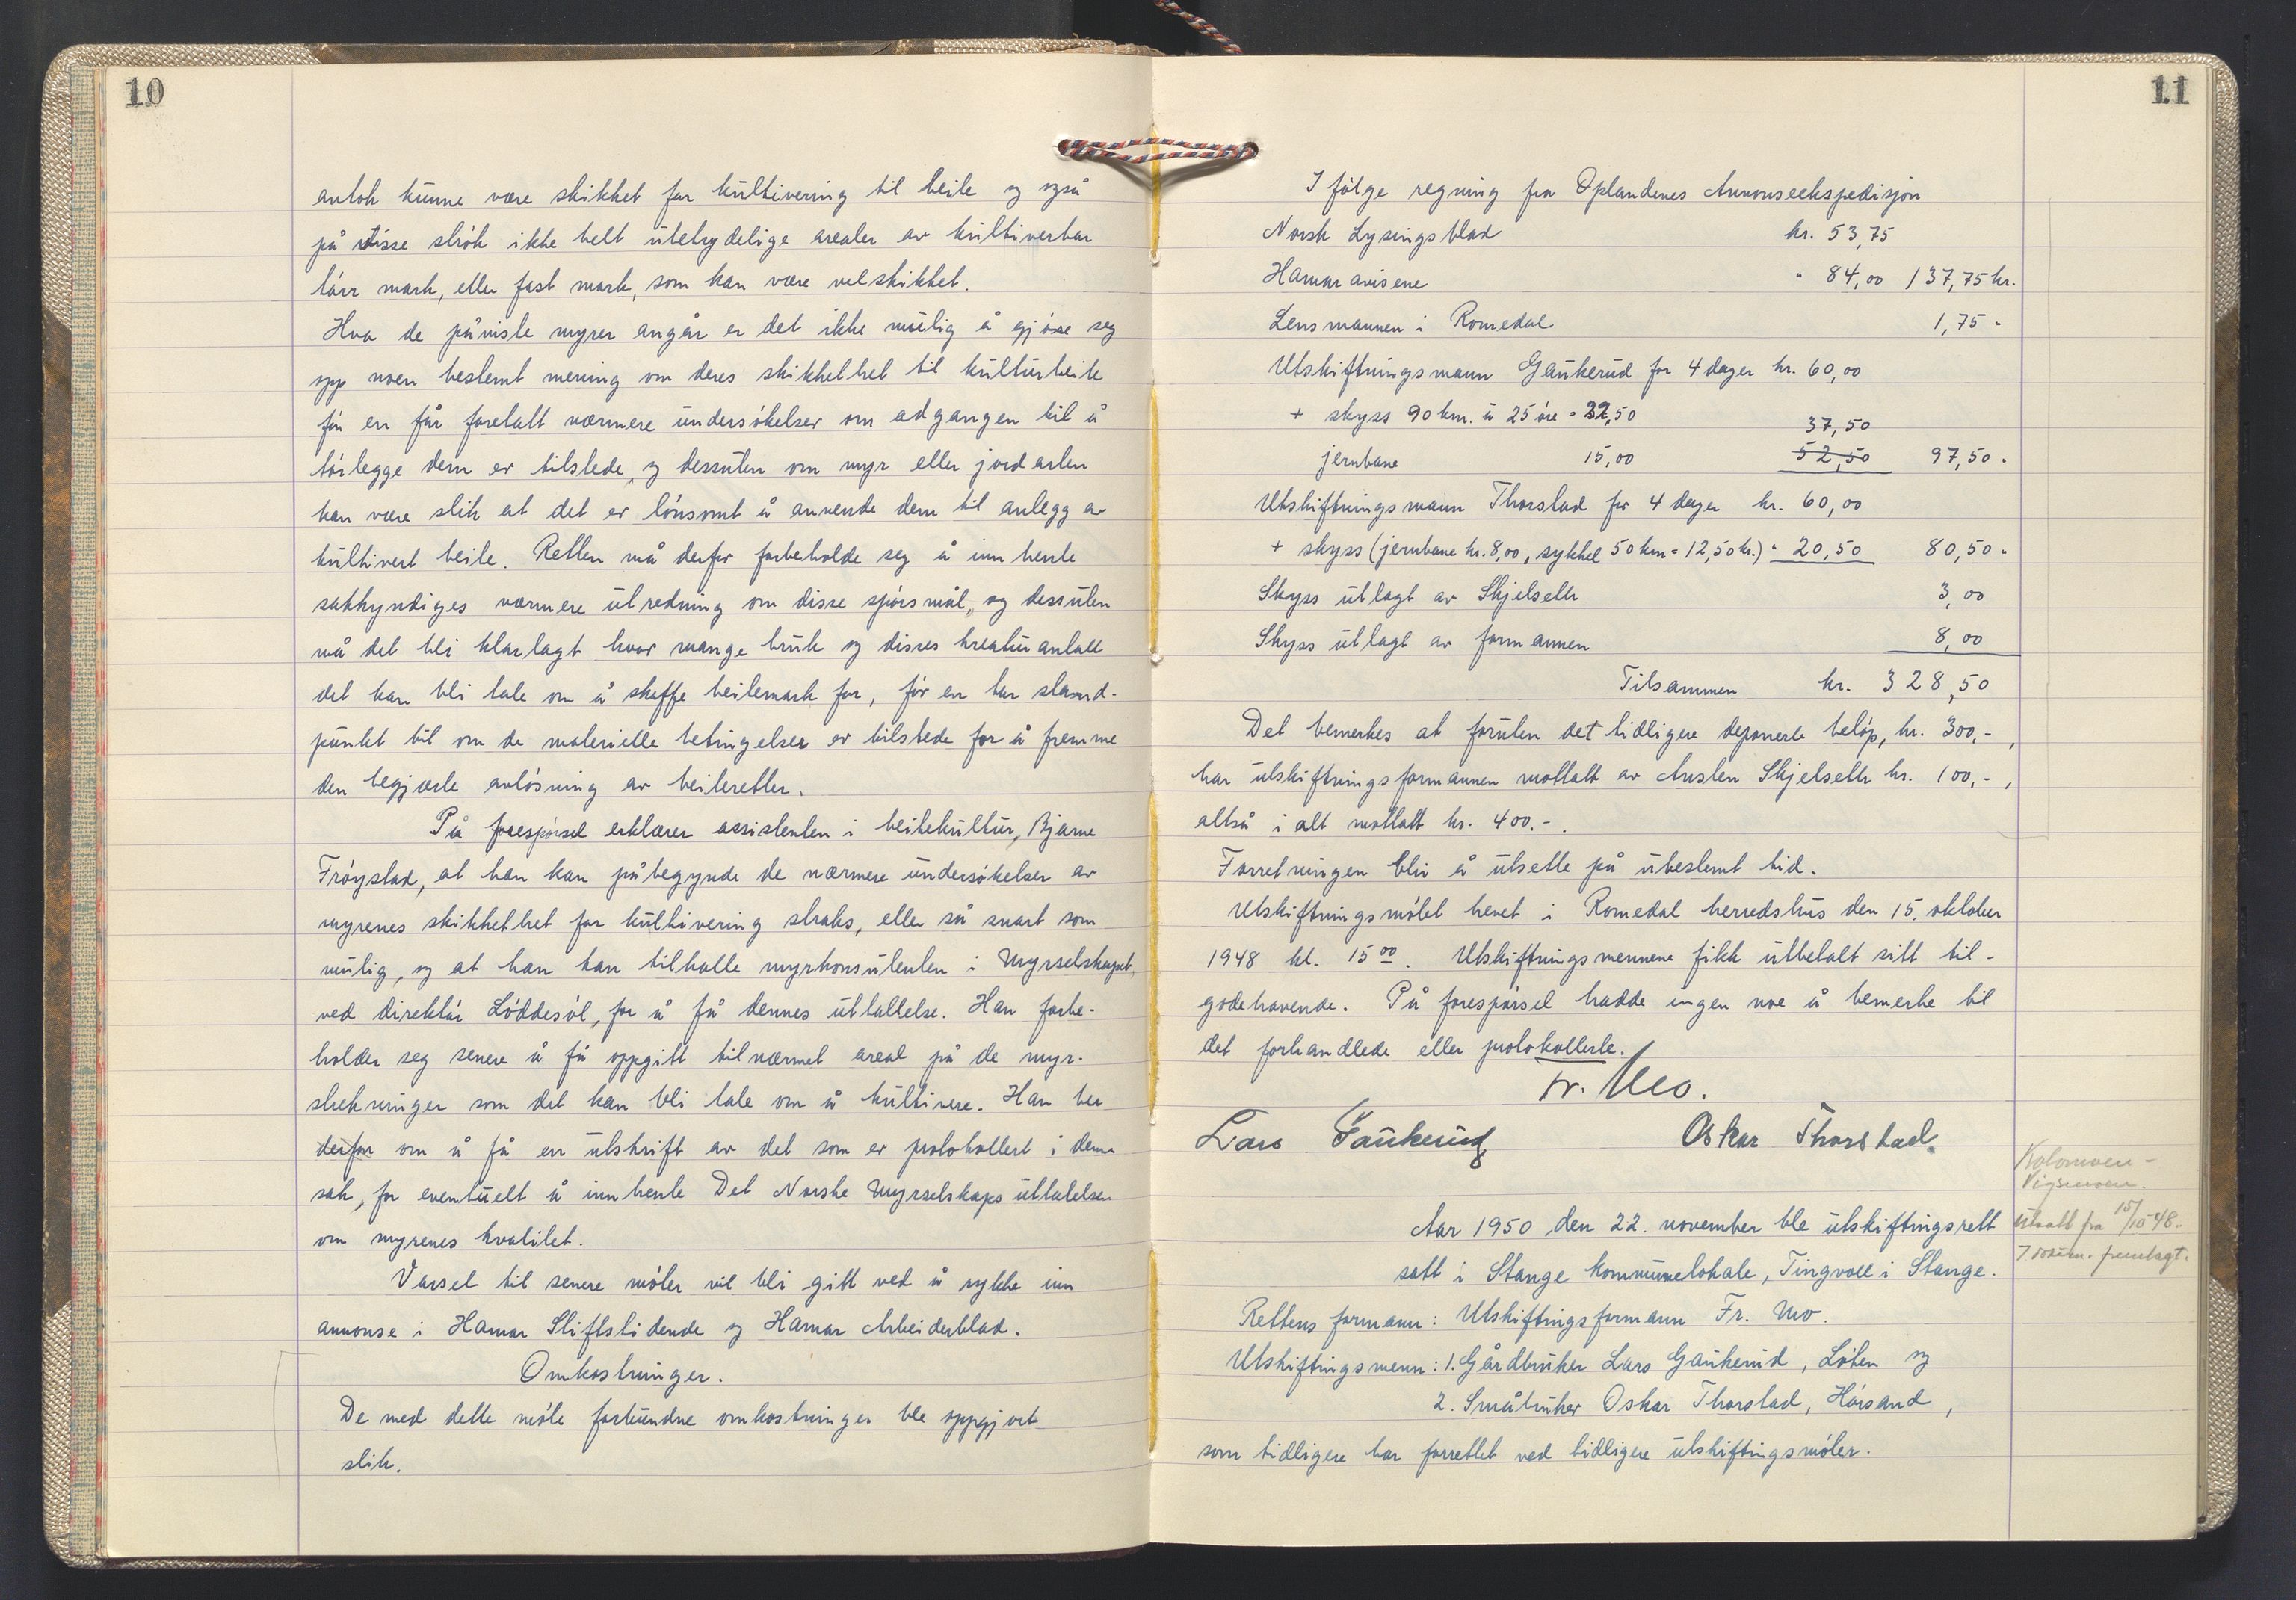 10
antok kunne være skikket for kultivering til beite og også
på disse strøk ikke helt ubetydelige arealer av kultiverbar
tørr mark, eller fast mark, som kan være velskikket.
Hva de påviste myrer angår er det ikke mulig å gjøre seg
opp noen bestemt mening om deres skikkethet til kulturbeite
før en får foretatt nærmere undersøkelser om adgangen til å
tørlegge dem er tilstede, og dessuten om myr eller jordarten
kan være slik at det er lønsomt å anvende dem til anlegg av
kultivert beite. Retten må derfor forbeholde seg å innhente
sakkyndiges nærmere utredning om disse spørsmål, og dessuten
må det bli klarlagt hvor mange bruk og disses kreaturantall
det kan bli tale om å skaffe beitemark for, før en tar stand-
punkt til om de materielle betingelser er tilstede for å fremme
den begjærte avløsning av beiteretter.
På forespørsel erklærer assistenten i beitekultur, Bjarne
Frøystad, at han kan påbegynde de nærmere undersøkelser av
myrenes skikkethet for kultivering straks, eller så snart som
mulig, og at han kan tilkalle myrkonsulenten i Myrselskapet,
ved direktør Løddesøl, for å få dennes uttallelse. Han forbe-
holder seg senere å få oppgitt tilnærmet areal på de myr-
strekninger som det kan bli tale om å kultivere. Han ber
derfor om å få en utskrift av det som er protokollert i denne
sak, for eventuelt å innhente Det Norske Myrselskaps uttalelse
om myrenes kvalitet.
Varsel til senere møter vil bli gitt ved å rykke inn
annonse i Hamar Stiftstidende og Hamar Arbeiderblad.
Omkostninger.
De med dette møte forbundne omkostninger ble oppgjort
slik.
11
I følge regning fra Oplandenes Annonseekspedisjon
Norsk Lysingsblad kr. 53,75
Hamar avisene " 84,00 137,75 kr.
Lensmannen i Romedal 1,75 "
Utskiftningsmann Gaukerud for 4 dager kr. 60,00
+ skyss 90 km. à 25 øre = 22,50
37,50
jernbane 15,00 52,50 97,50 "
Utskiftningsmann Thorstad for 4 dager kr. 60,00
+ skyss (jernbane kr. 8,00, sykkel 50 km = 12,50 kr.) " 20,50 80,50 "
Skyss utlagt av Skjelseth 3,00
Skyss utlagt av formannen 8,00
Tilsammen kr. 328,50
Det bemerkes at foruten det tidligere deponerte beløp, kr. 300,-,
har utskiftningsformannen mottatt av Austen Skjelseth kr. 100,-,
altså i alt mottatt kr. 400.-.
Forretningen blir å utsette på ubestemt tid.
Utskiftningsmøtet hevet i Romedal herredshus den 15. oktober
1948 kl. 15 00. Utskiftningsmennene fikk utbetalt sitt til-
godehavende. På forespørsel hadde ingen noe å bemerke til
det forhandlede eller protokollerte.
Fr. Mo.
Lars Gaukerud Oskar Thorstad.
Kolomoen -
Vigsmoen.
Aar 1950 den 22. november ble utskiftingsrett
utsatt fra 15/10 48.
satt i Stange kommunelokale, Tingvoll i Stange.
7 dokum. fremlagt.
Rettens formann: Utskiftingsformann Fr. Mo.
Utskiftingsmenn: 1. Gårdbruker Lars Gaukerud, Løten og
2. Småbruker Oskar Thorstad, Hørsand,
som tidligere har forrettet ved tidligere utskiftingsmøter.